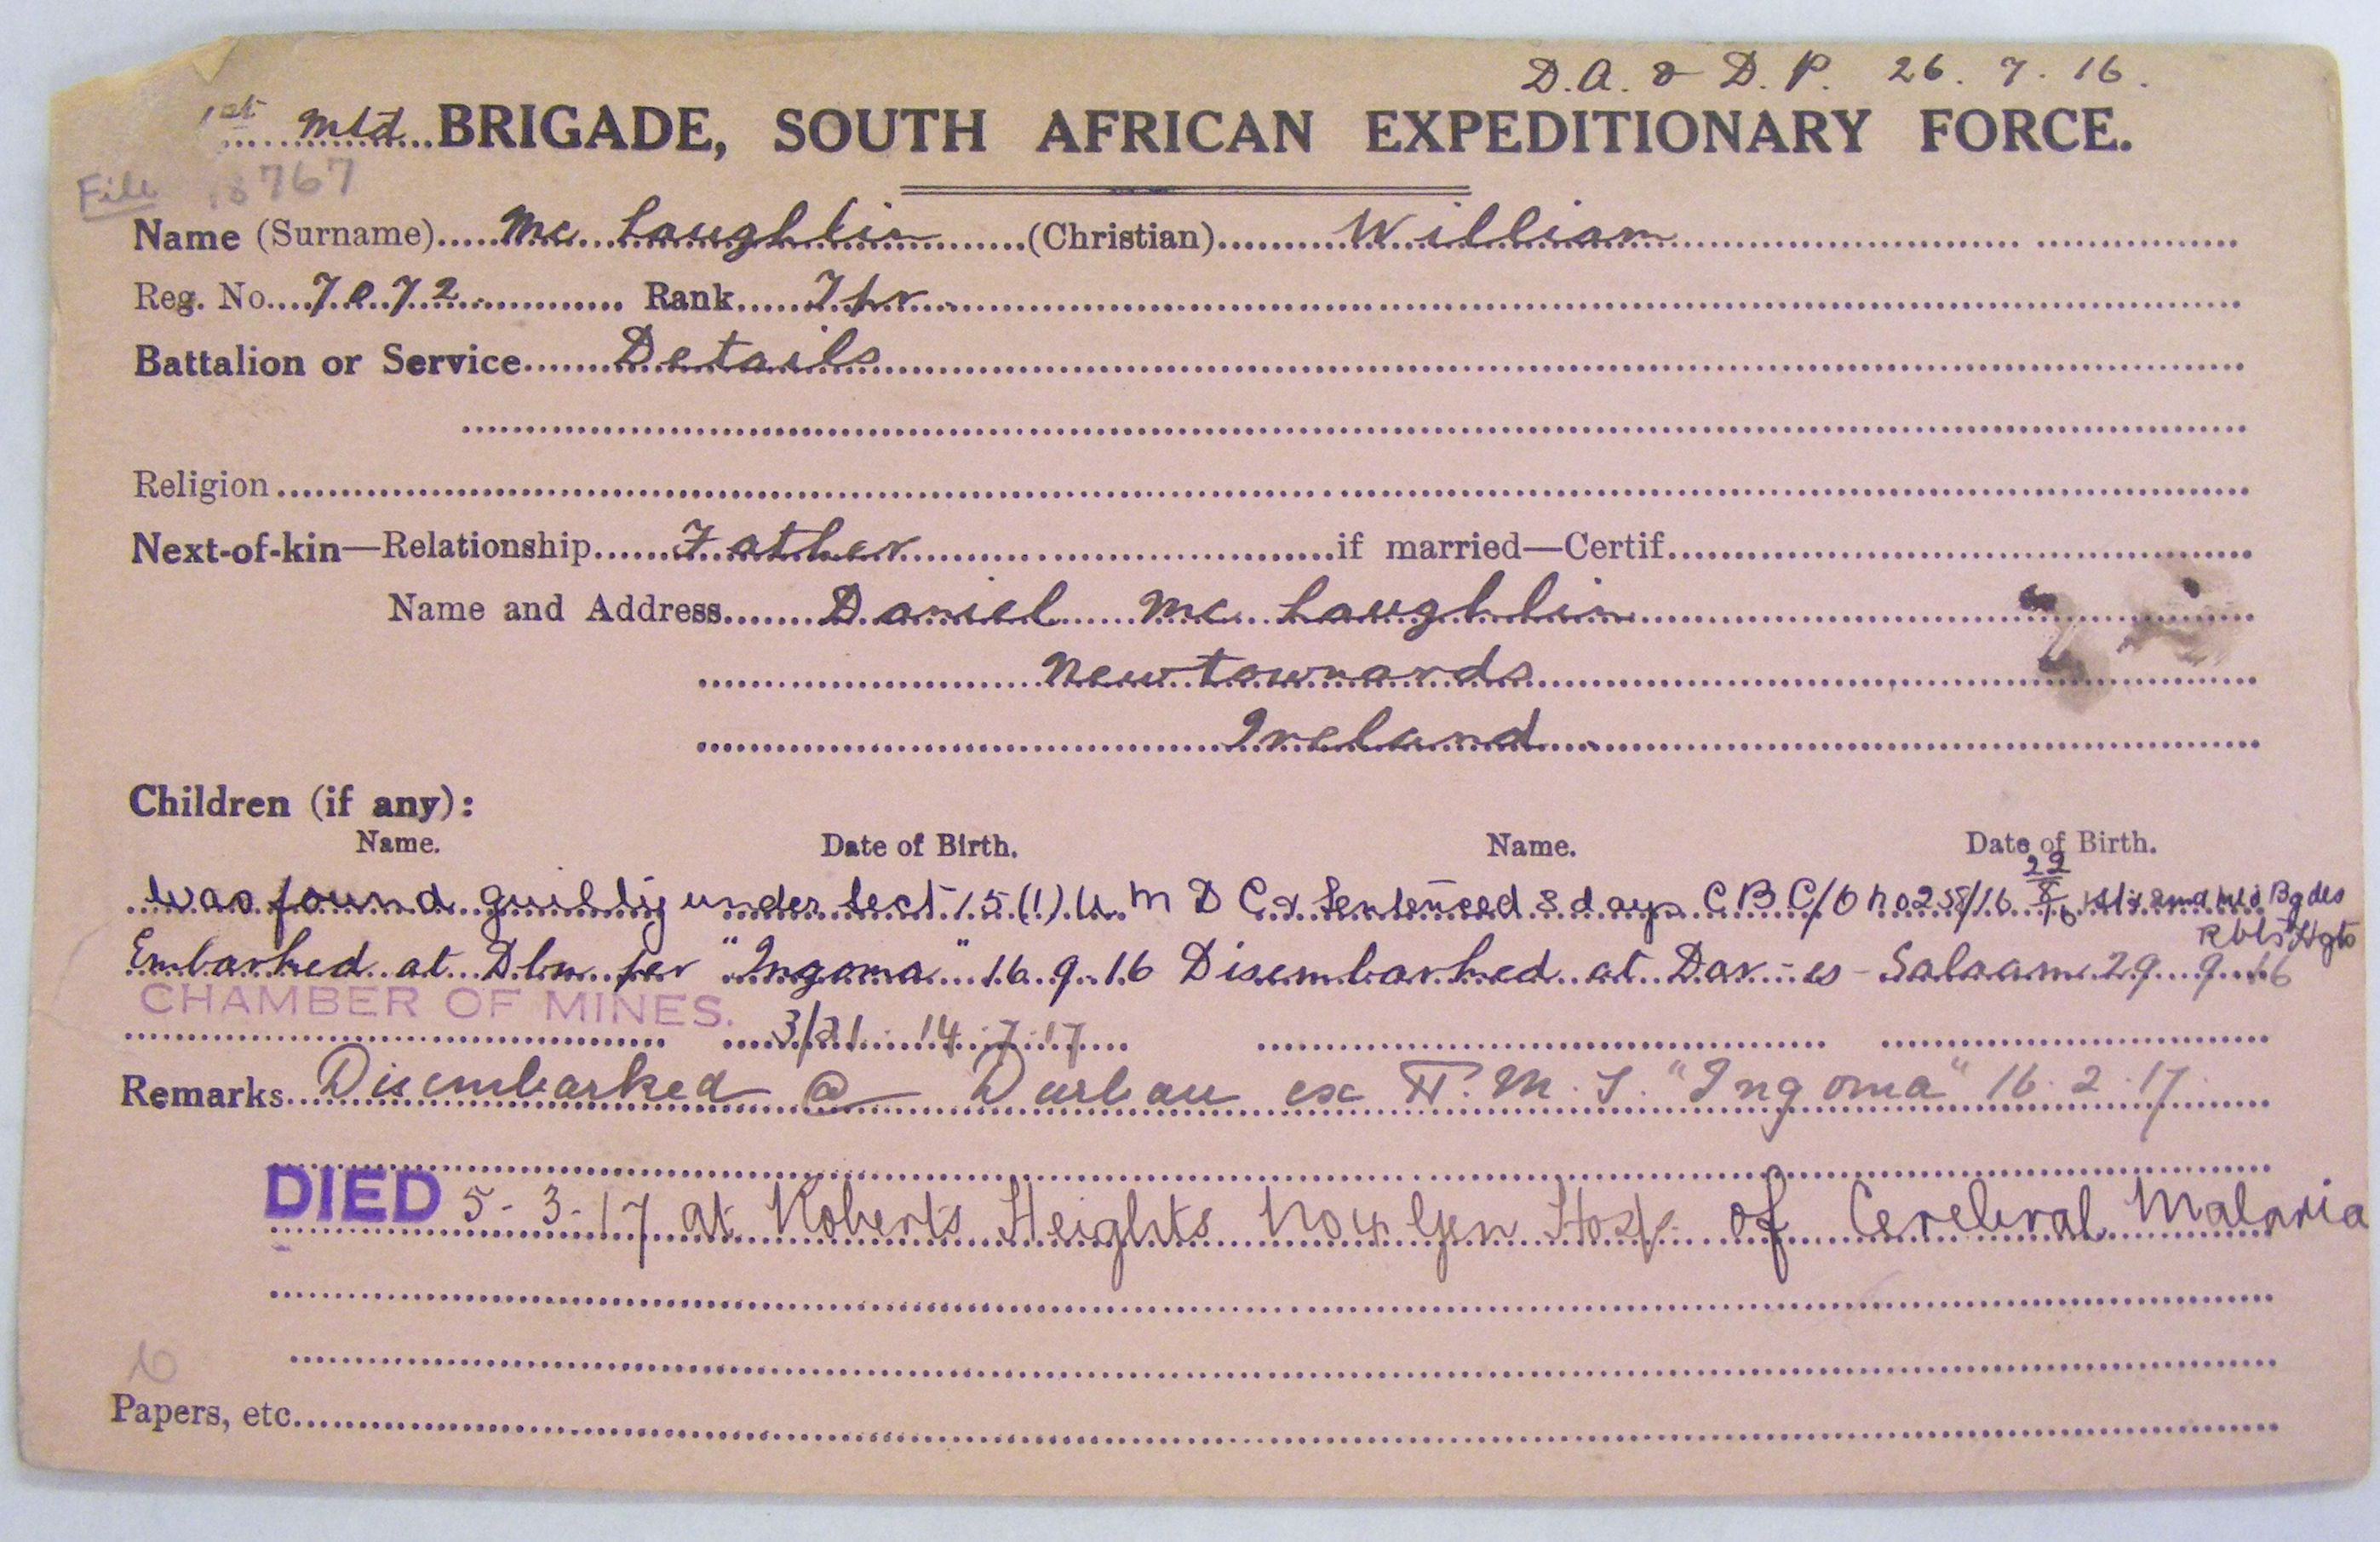 D.A. & D.P. 26.7.16.
1st Mtd BRIGADE, SOUTH AFRICAN EXPEDITIONARY FORCE.
File 18767
Name (Surname) Mc Laughlin (Christian) William
Reg. No. 7072 Rank Tpr
Battalion or Service Details
Religion
Next-of-kin—Relationship Father if married—Certif
Name and Address Daniel Mc Laughlin
Newtownards
Ireland
Children (if any):
Name. Date of Birth. Name. Date of Birth.
Was found guilty under Sect 15(1) U M D C & Sentenced 8 days C B C/O No 238/16 29/8/16 1st & 2nd Mtd Bgdes
Rbts Hgts
Embarked at Dbn per "Ingoma" 16.9.16 Disembarked at Dar-es-Salaam 29.9.16
CHAMBER OF MINES. 3/21. 14.7.17
Remarks Disembarked @ Durban ex H.M.T. "Ingoma" 16.2.17.
DIED 5-3-17 at Roberts Heights No 4 Gen Hosp. of Cerebral Malaria
Papers, etc.